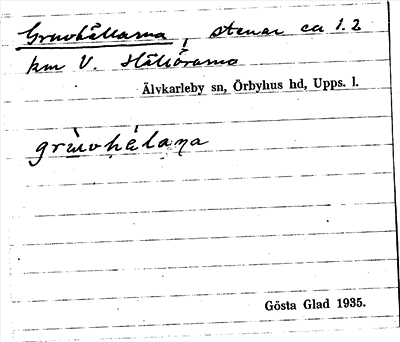 Gruvhällarna, stenar ca 1.2
km V. Hällörarna
Älvkarleby sn, Örbyhus hd, Upps. l.
grùvhálaṇa
Gösta Glad 1935.